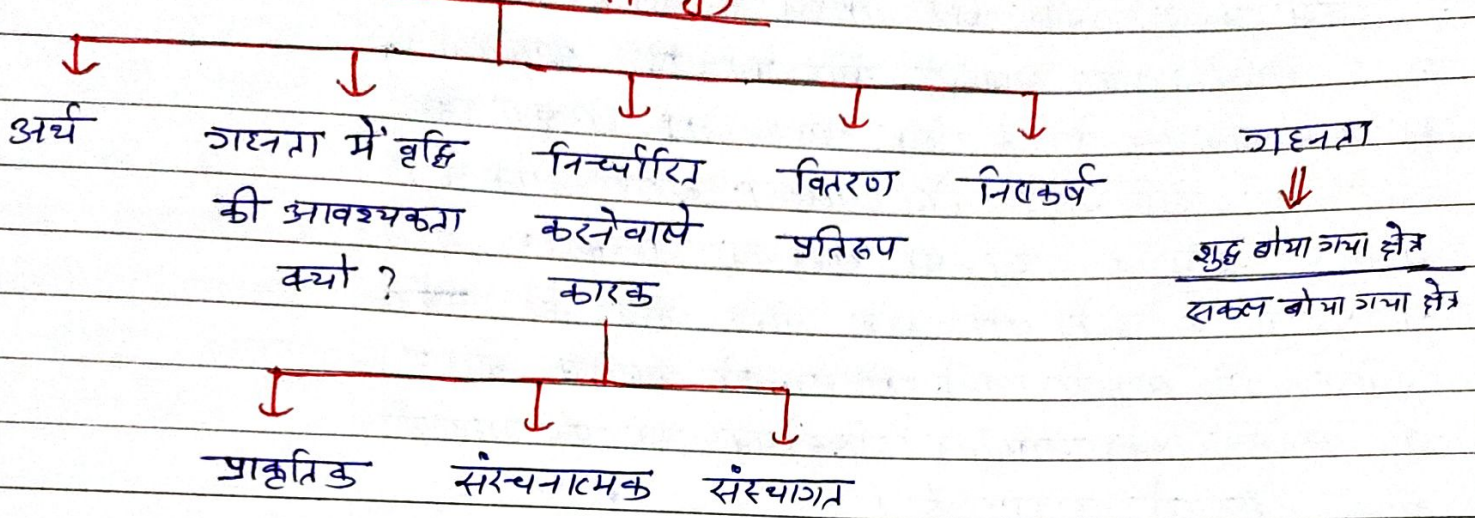 अर्थ
गहनता में वृद्धि
की आवश्यकता
क्यो ?
निर्धारित
करनेवाले
कारक
वितरण
प्रतिरूप
निष्कर्ष
गहनता
⇓
शुद्ध बोया गया क्षेत्र
सकल बोया गया क्षेत्र
प्राकृतिक
संरचनात्मक
संस्थागत